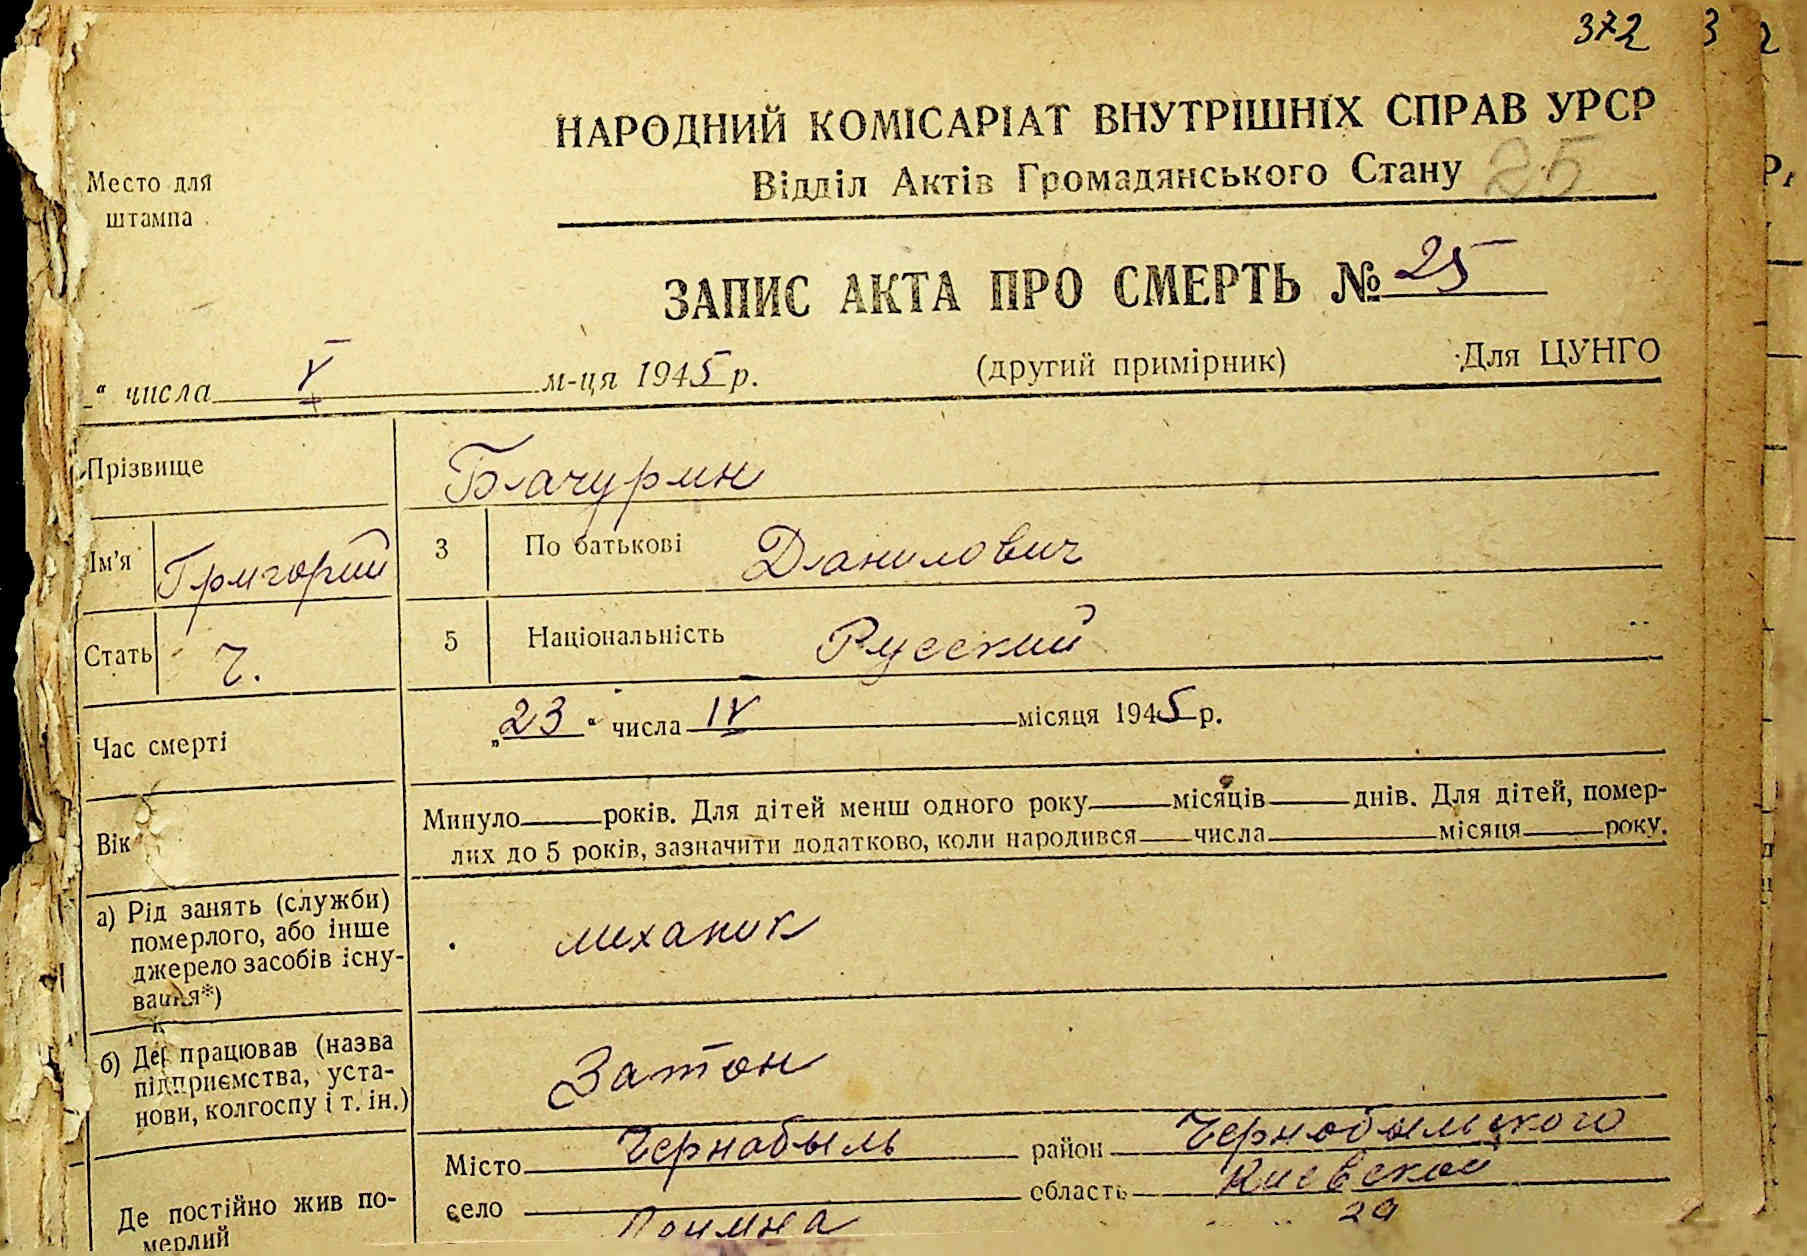 372
НАРОДНИЙ КОМІСАРІАТ ВНУТРІШНІХ СПРАВ УРСР
Відділ Актів Громадянського Стану 25
Место для
штампа
ЗАПИС АКТА ПРО СМЕРТЬ № 25
“ числа V м-ця 1945 р. (другий примірник) Для ЦУНГО
Прізвище Бачурин
Ім'я Григорий 3 По батькові Данилович
Стать ч. 5 Національність Русский
Час смерті „23“ числа IV місяця 1945 р.
Вік Минуло року років. Для дітей менш одного року місяців днів. Для дітей, помер-
лих до 5 років, зазначити додатково, коли народився числа місяця року.
а) Рід занять (служби)
померлого, або інше
джерело засобів існу-
вання*)
механик
б) Де працював (назва
підприємства, уста-
нови, колгоспу і т. ін.)
Затон
Де постійно жив по-
мерлий
Місто Чернобыль район Чернобыльского
село область Киевской
29